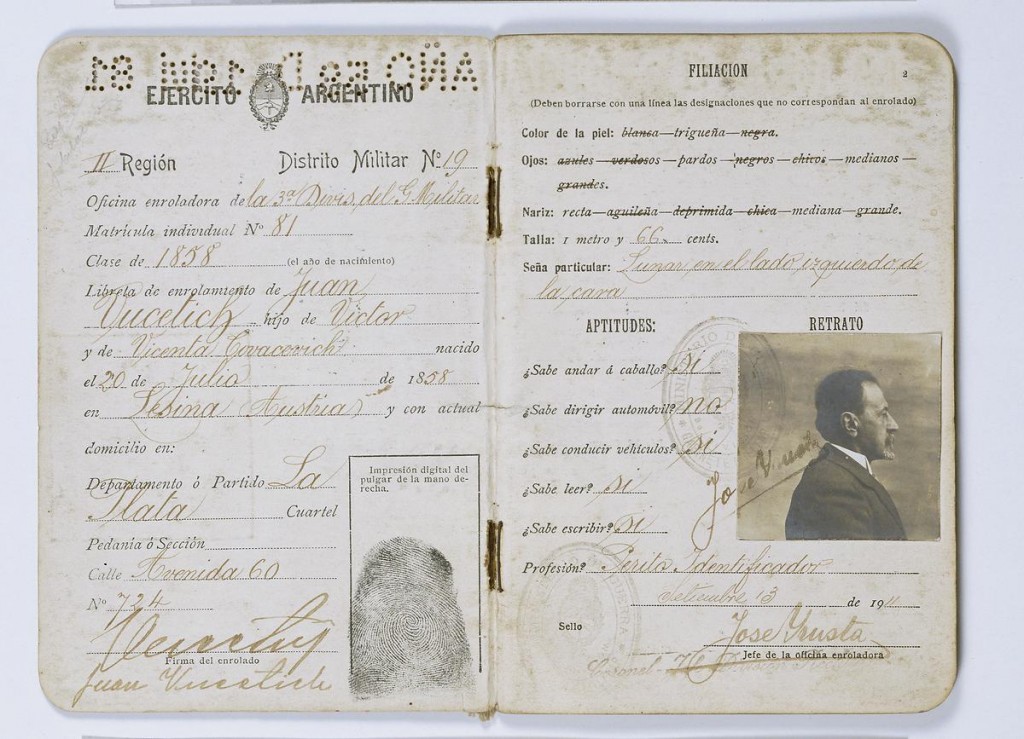 EJERCITO ARGENTINO
II Región Distrito Militar Nº 19
Oficina enroladora de la 3ª Divis. del G. Militar
Matrícula individual Nº 81
Clase de 1858 (el año de nacimiento)
Libreta de enrolamiento de Juan
Vucetich hijo de Victor
y de Vicenta Covacevich nacido
el 20 de Julio de 1858
en Lesina (Austria) y con actual
domicilio en:
Departamento ó Partido La
Plata Cuartel
Pedanía ó Sección
Calle Avenida 60
Nº 724
Firma del enrolado
Juan Vucetich
Impresión digital del
pulgar de la mano de-
recha.
FILIACION 2
(Deben borrarse con una línea las designaciones que no correspondan al enrolado)
Color de la piel: blanca—trigueña—negra.
Ojos: azules—verdosos—pardos—negros—chicos—medianos—
grandes.
Nariz: recta—aguileña—deprimida—chica—mediana—grande.
Talla: 1 metro y 66 cents.
Seña particular: Lunar en el lado izquierdo de
la cara
APTITUDES:
¿Sabe andar á caballo? Si
¿Sabe dirigir automóvil? no
¿Sabe conducir vehículos? Si
¿Sabe leer? si
¿Sabe escribir? Si
RETRATO
Profesión? Perito Identificador
Setiembre 13 de 1911
Sello
Jefe de la oficina enroladora
Coronel